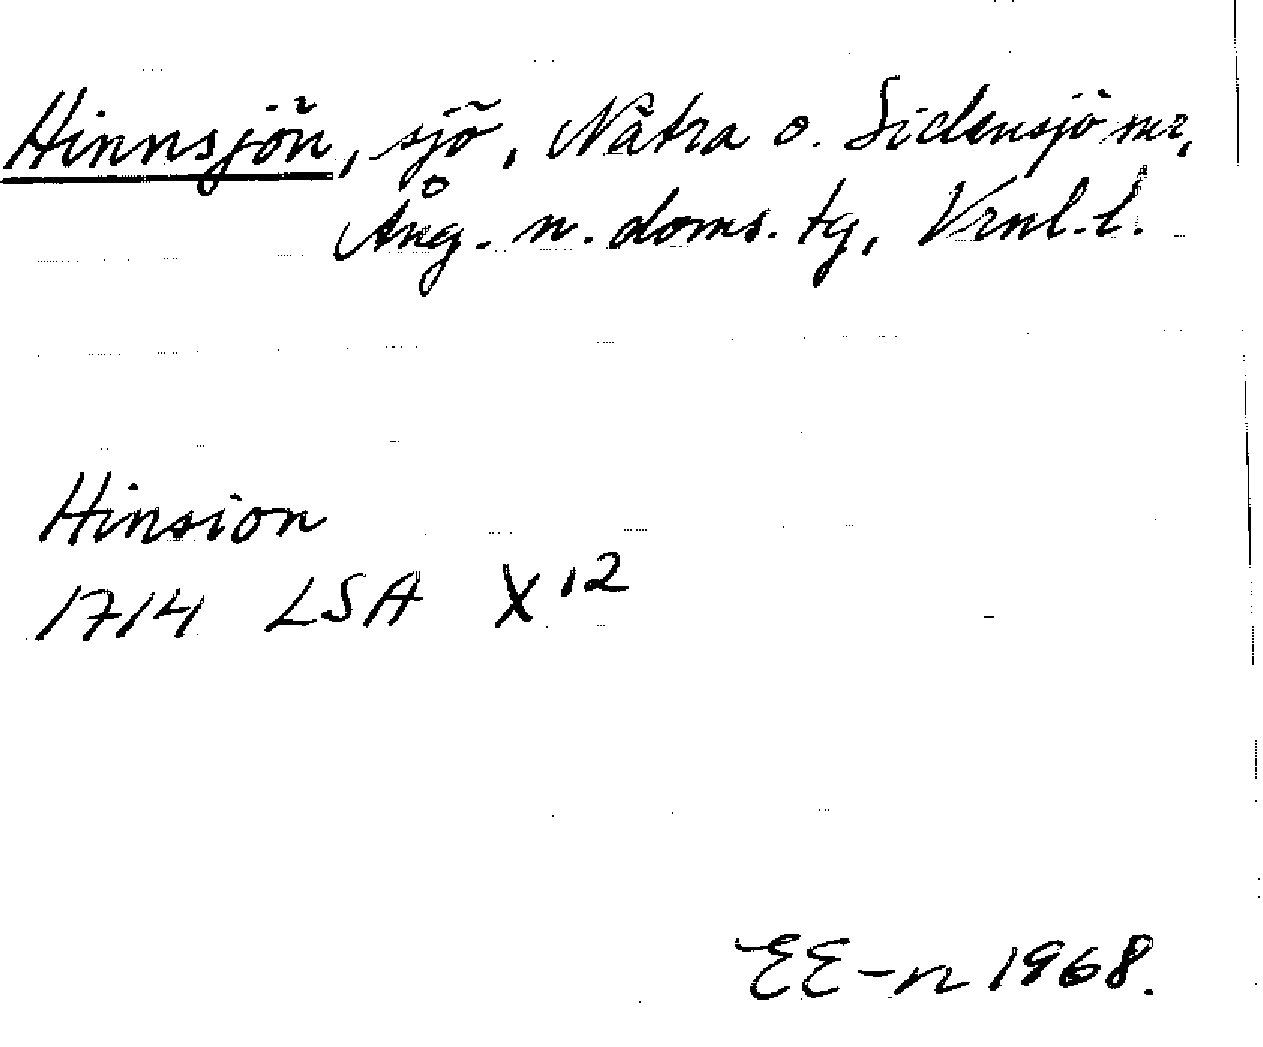 Hinnsjön, sjö, Nätra o. Sidensjö snr,
Ång. n. doms. tg, Vrnl. l.
Hinsion
1714 LSA X 12
EE-n 1968.